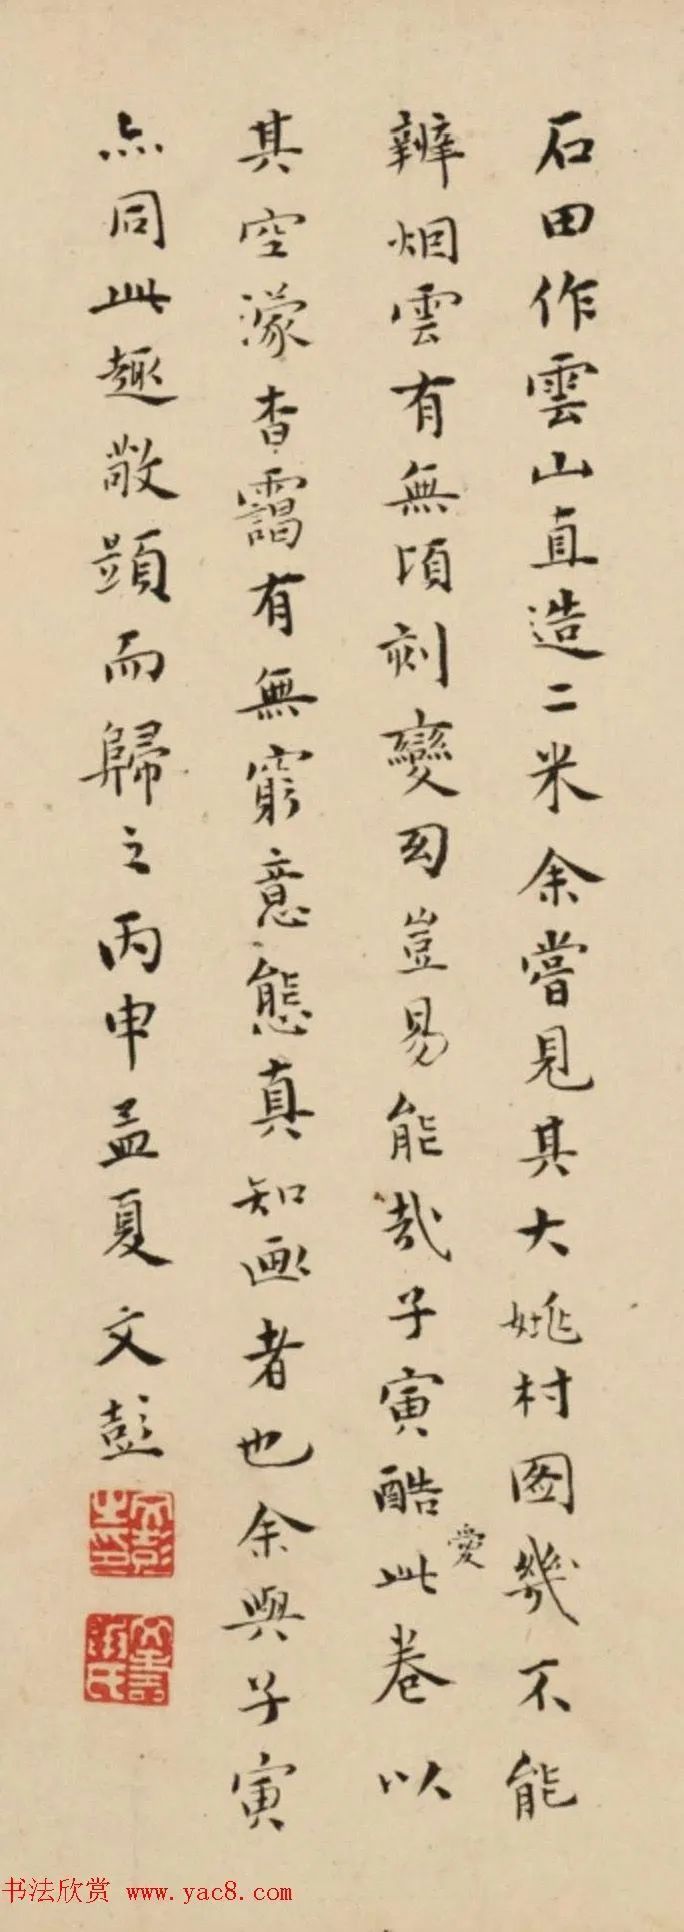 石田作雲山直造二米余嘗見其大姚村圖幾不能
辨烟雲有無頃刻變幻豈易能哉子寅酷愛此卷以
其空濛杳靄有無窮意態真知画者也余與子寅
亦同此趣敬題而歸之丙申孟夏文彭
文彭之印
文壽承氏
书法欣赏 www.yac8.com